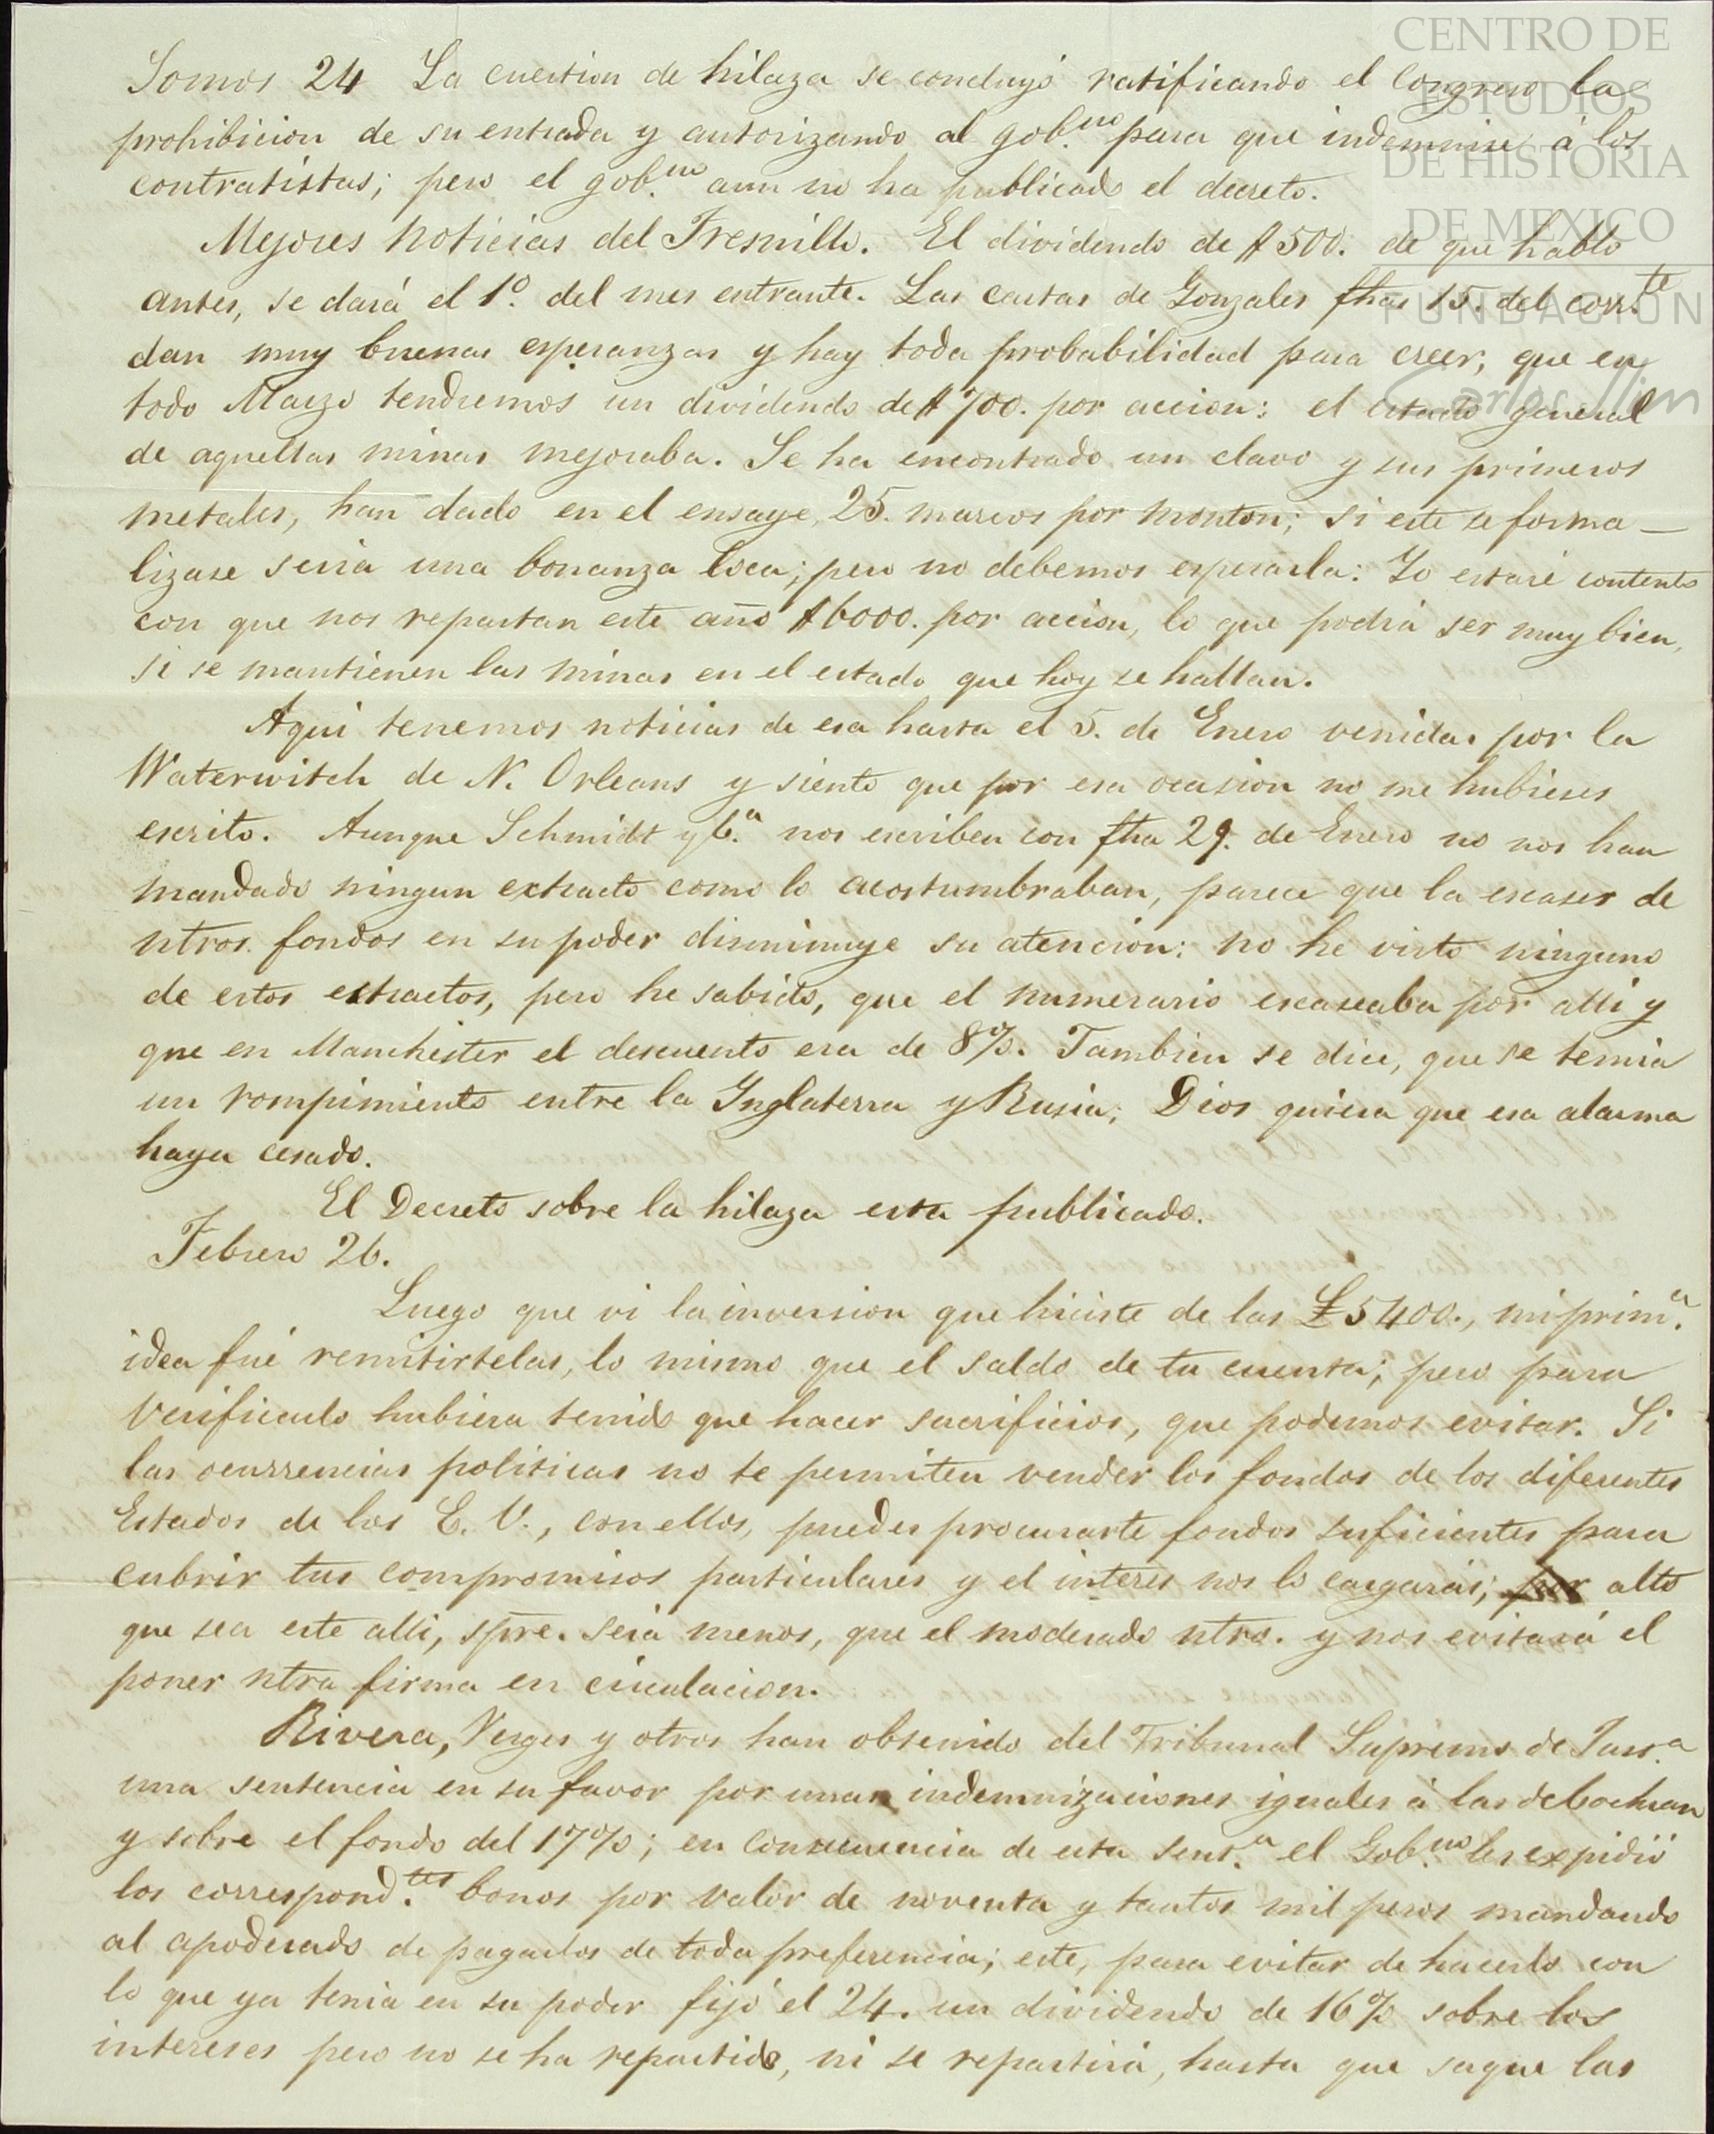 CENTRO DE
ESTUDIOS
DE HISTORIA
DE MEXICO
FUNDACIÓN
Carlos Slim
Somos 24 La cuestion de hilaza se concluyó ratificando el Congreso la
prohibicion de su entrada y autorizando al gob.no para que indemnise á los
contratistas; pero el gob.no aun no ha publicado el decreto.
Mejores noticias del Fresnillo. El dividendo de $500. de que hablo
antes, se dará el 1º. del mes entrante. Las cartas de Gonzales fhas 15. del corr.te
dan muy buenas esperanzas y hay toda probabilidad para creer, que en
todo Marzo tendremos un dividendo de $700. por accion: el estado general
de aquellas minas mejoraba. Se ha encontrado un clavo y sus primeros
metales, han dado en el ensaye, 25. marcos por monton; si este se forma-
lizase seria una bonanza loca; pero no debemos esperarla: Yo estaré contento
con que nos repartan este año $6000. por accion, lo que podrá ser muy bien,
si se mantienen las minas en el estado que hoy se hallan.
Aqui tenemos noticias de esa hasta el 5. de Enero venidas por la
Waterwitch de N. Orleans y siento que por esa ocasion no me hubieses
escrito. Aunque Schmidt y C.a nos escriben con fha 29. de Enero no nos han
mandado ningun extracto como lo acostumbraban, parece que la escases de
ntros. fondos en su poder disminuye su atencion: no he visto ninguno
de estos extractos, pero he sabido, que el numerario escaseaba por alli y
que en Manchester el descuento era de 8%. Tambien se dice, que se temia
un rompimiento entre la Inglaterra y Rusia; Dios quiera que esa alarma
haya cesado.
El Decreto sobre la hilaza esta publicado.
Febrero 26.
Luego que vi la inversion que hiciste de las £5400., mi prim.a
idea fué remitirtelas, lo mismo que el saldo de tu cuenta; pero para
verificarlo hubiera tenido que hacer sacrificios, que podemos evitar. Si
las ocurrencias politicas no te permiten vender los fondos de los diferentes
Estados de los E. U., con ellos, puedes procurarte fondos suficientes para
cubrir tus compromisos particulares y el interes nos lo cargarás; por alto
que sea este alli, spre. será menos, que el moderado ntro. y nos evitará el
poner ntra firma en circulacion.
Rivera, Verges y otros han obtenido del Tribunal Supremo de Just.a
una sentencia en su favor por unas indemnizaciones iguales á las de Cochran
y sobre el fondo del 17%; en consecuencia de esta sent.a el Gob.no les expidió
los correspond.tes bonos por valor de noventa y tantos mil pesos mandando
al apoderado de pagarlos de toda preferencia; este, para evitar de hacerlo con
lo que ya tenia en su poder fijó el 24. un dividendo de 16% sobre los
intereses pero no se ha repartido, ni se repartirá, hasta que saque las